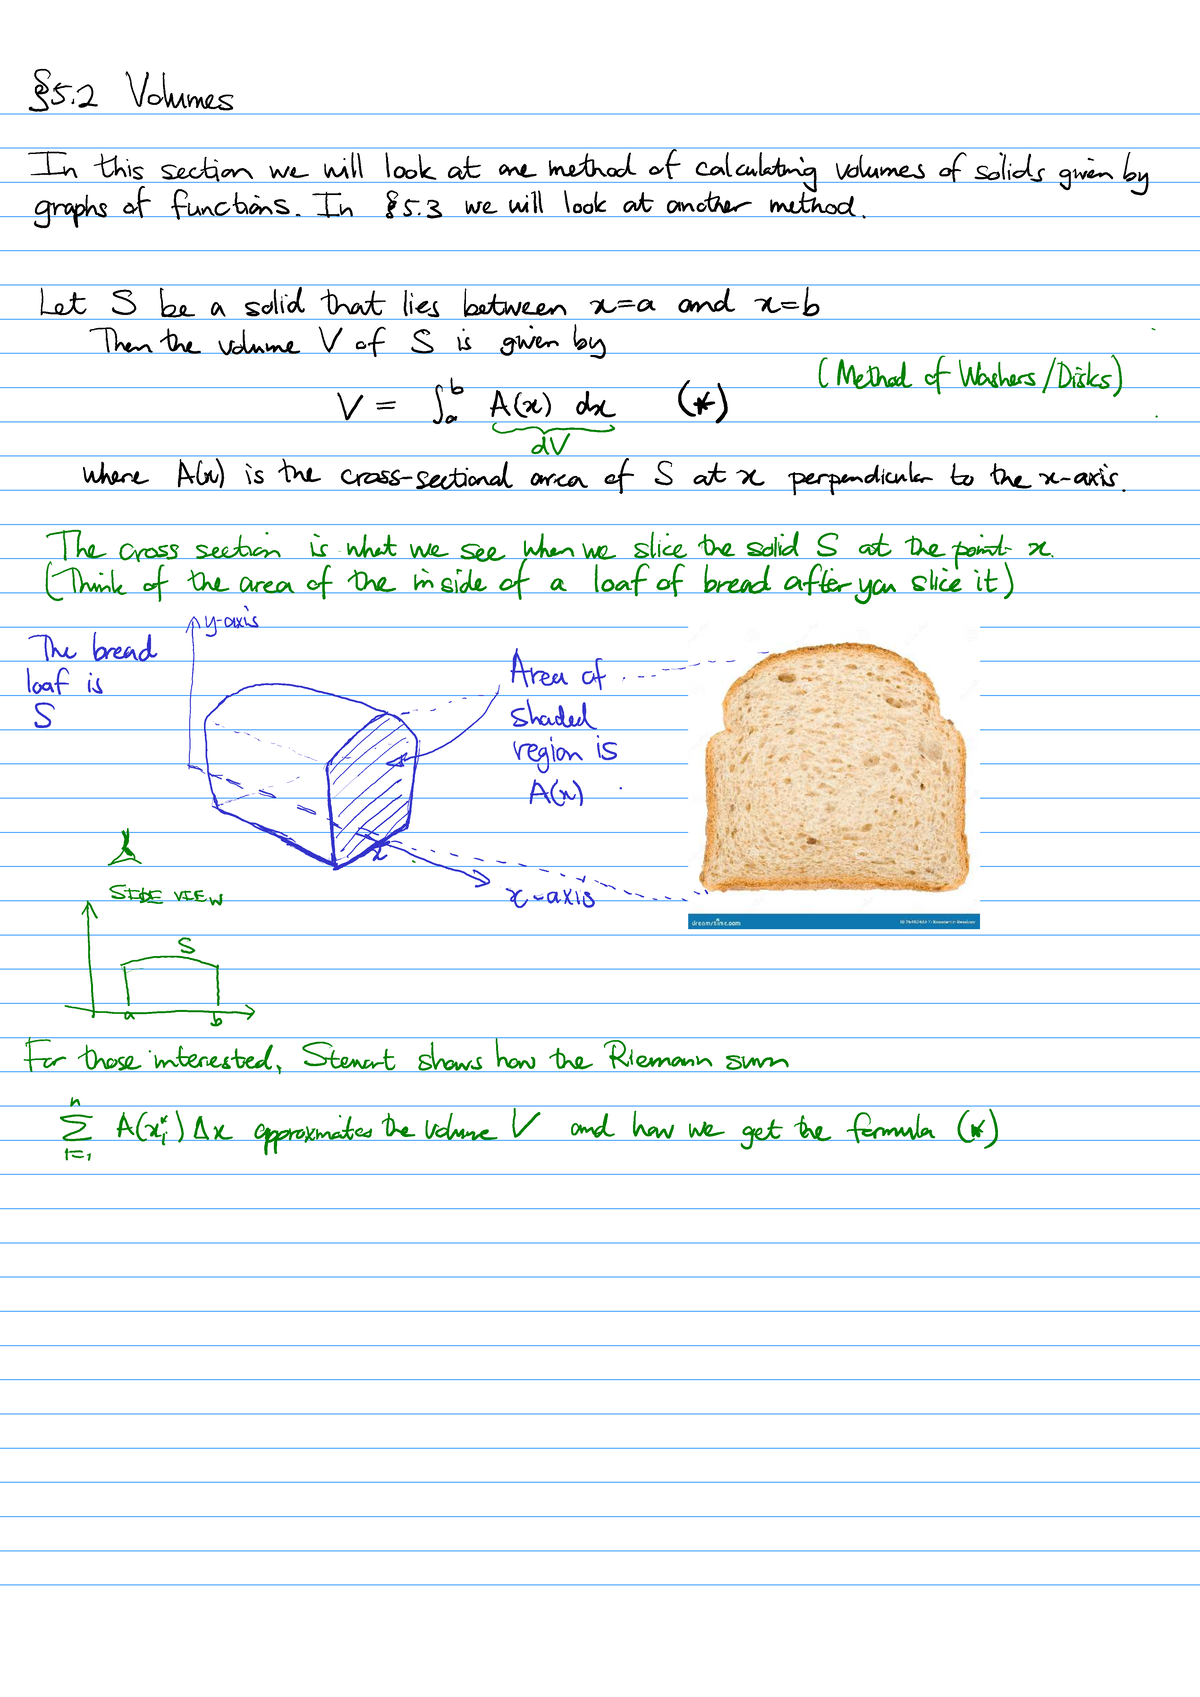 §5.2 Volumes
In this section we will look at one method of calculating volumes of solids given by
graphs of functions. In §5.3 we will look at another method.
Let S be a solid that lies between x=a and x=b
Then the volume V of S is given by
(Method of Washers/Disks)
V = ∫ₐᵇ A(x) dx (*)
dV
where A(x) is the cross-sectional area of S at x perpendicular to the x-axis.
The cross section is what we see when we slice the solid S at the point x.
(Think of the area of the inside of a loaf of bread after you slice it)
y-axis
The bread
loaf is
S
Area of
shaded
region is
A(x)
x
x-axis
dreamstime.com
SIDE VIEW
S
a
b
For those interested, Stewart shows how the Riemann sum
n
Σ A(xᵢ*) Δx approximates the volume V and how we get the formula (*)
i=1